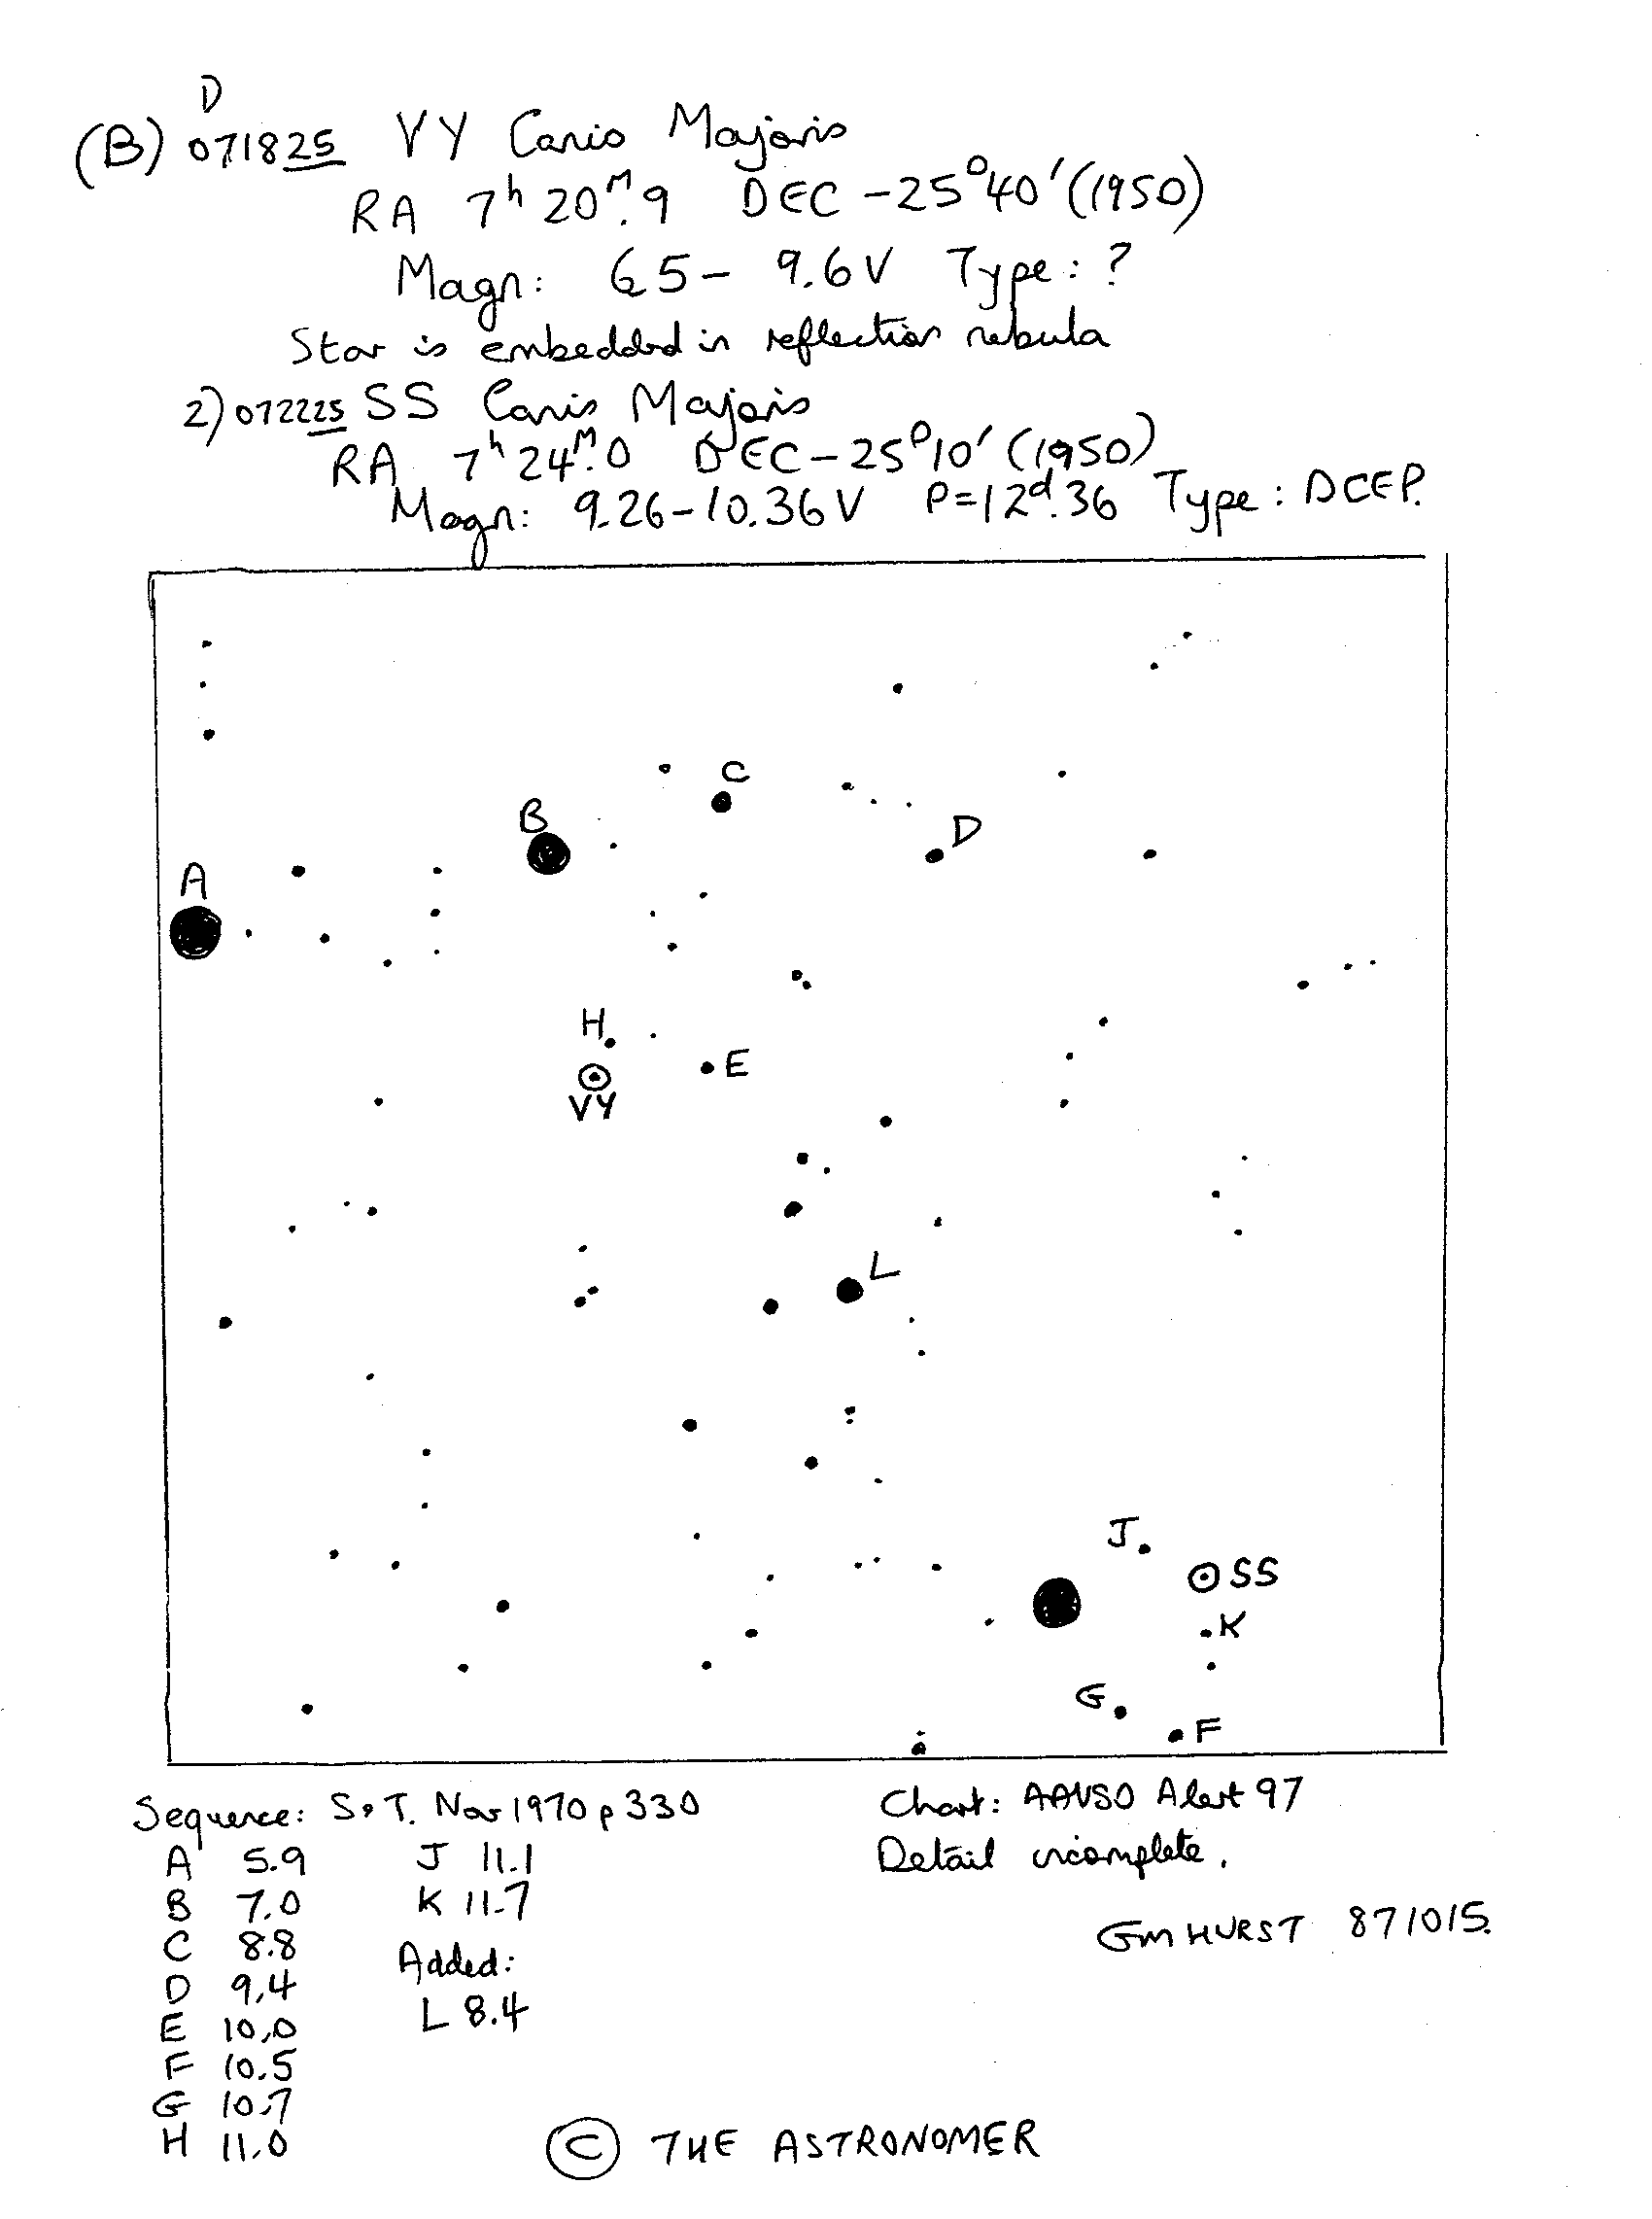 D
(B) 071825 VY Canis Majoris
RA 7h 20m.9 DEC -25°40' (1950)
Magn: 6.5 - 9.6V Type: ?
Star is embedded in reflection nebula
2) 072225 SS Canis Majoris
RA 7h 24m.0 DEC -25°10' (1950)
Magn: 9.26-10.36V P=12d.36 Type: DCEP.
C
B
D
A
H
E
VY
L
J
SS
K
G
F
Sequence: S&T. Nov 1970 p 330
A 5.9
B 7.0
C 8.8
D 9.4
E 10.0
F 10.5
G 10.7
H 11.0
J 11.1
K 11.7
Added:
L 8.4
Chart: AAVSO Alert 97
Detail incomplete.
GM HURST 871015.
© THE ASTRONOMER